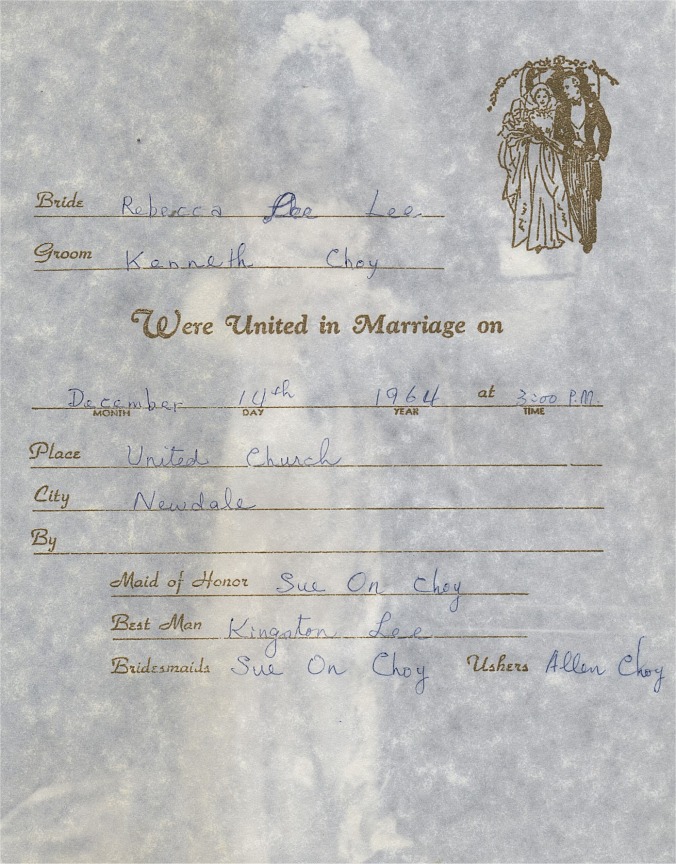 Bride Rebecca Lee
Groom Kenneth Choy
Were United in Marriage on
December 14th 1964 at 3:00 P.M.
MONTH DAY YEAR TIME
Place United Church
City Newdale
By
Maid of Honor Sue On Choy
Best Man Kingston Lee
Bridesmaids Sue On Choy Ushers Allen Choy